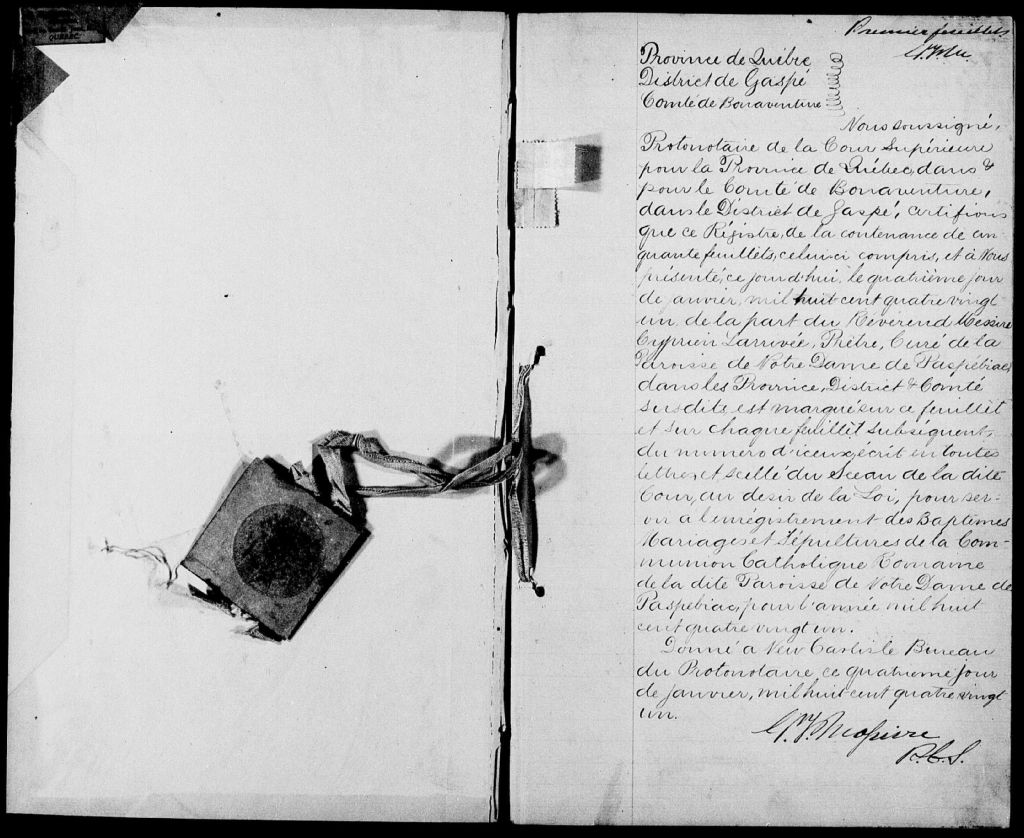 QUÉBEC
Premier feuillet
Province de Québec
District de Gaspé
Comté de Bonaventure
Nous soussigné,
Protonotaire de la Cour Supérieure
pour la Province de Québec, dans &
pour le Comté de Bonaventure,
dans le District de Gaspé, certifions
que ce Régistre, de la contenance de cin-
quante feuillets, celui-ci compris, et à Nous
présenté, ce jour d'hui, le quatrième jour
de janvier, mil huit cent quatre vingt
un, de la part du Révérend Messire
Cyprien Larrivée, Prêtre, Curé de la
Paroisse de Notre Dame de Paspébiac
dans les Province, District & Comté
susdits, est marqué sur ce feuillet
et sur chaque feuillet subséquent,
du numéro d'iceux, écrit en toutes
lettres, et scellé du Sceau de la dite
Cour, au desir de la Loi, pour ser-
vir à l'enrégistrement des Baptêmes
Mariages et Sépultures de la Com-
munion Catholique Romaine
de la dite Paroisse de Notre Dame de
Paspebiac, pour l'année mil huit
cent quatre vingt un.
Donné à New Carlisle Bureau
du Protonotaire, ce quatrieme jour
de janvier, mil huit cent quatre vingt
un.
P.C.S.